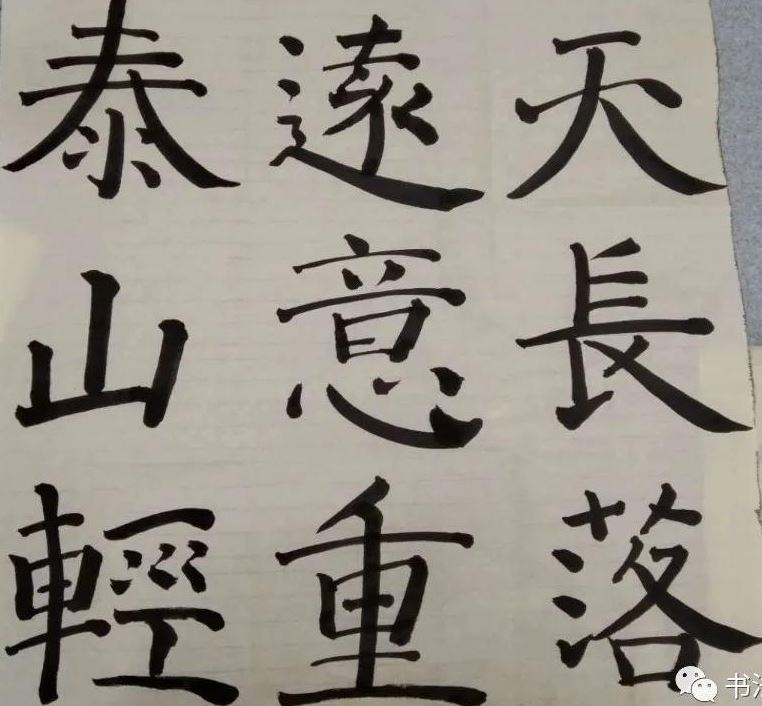 天長落
遠意重
泰山輕
书法